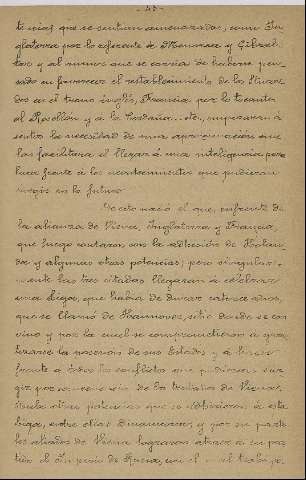 - 45 -
tencias que se sentian amenazadas, como In-
glaterra por lo referente á Menorca y Gibral-
tar y al menos que se corria de haberse pen-
sado en favorecer el restablecimiento de los Stuar-
dos en el trono inglés, Francia por lo tocante
al Rosellón y á la Cerdaña... etc., empezaron á
sentir la necesidad de una aproximación que
les facilitara el llegar á una inteligencia para
hacer frente á los acontecimientos que pudieran
surgir en lo futuro.
De esto nació el que, enfrente de
la alianza de Viena, Inglaterra y Francia,
que luego contaron con la adhesión de Holan-
da y algunas otras potencias; pero singular-
mente las tres citadas llegaran á celebrar
una Liga, que había de durar quince años,
que se llamó de Hannover, sitio donde se con-
vino y por la cual se comprometieron á gara
tizarse la posesión de sus Estados y á hacer
frente á todos los conflictos que pudieran sur-
gir por consecuencia de los tratados de Viena,
otras potencias que se adhirieron á esta
Liga, entre otras Dinamarca; y por su parte
los aliados de Viena lograron atraer á su par-
tido el Imperio de Rusia, con el cual trabajo